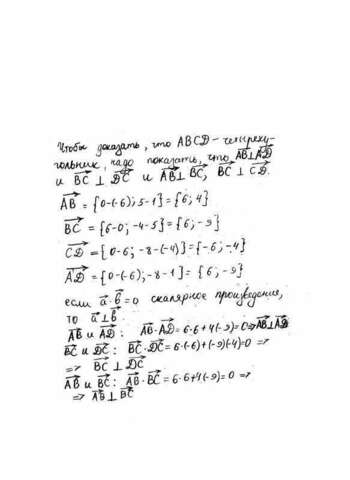 Чтобы доказать, что ABCD – четыреху-
гольник, надо показать, что AB⊥AD
и BC ⊥ DC и AB⊥BC; BC ⊥ CD.
AB = {0-(-6); 5-1} = {6; 4}
BC = {6-0; -4-5} = {6; -9}
CD = {0-6; -8-(-4)} = {-6; -4}
AD = {0-(-6); -8-1} = {6; -9}
если a·b=0 скалярное произведения,
то a⊥b.
AB и AD: AB·AD = 6·6+4(-9)=0 ⇒ AB⊥AD
BC и DC: BC·DC = 6·(-6)+(-9)(-4)=0 ⇒
⇒ BC ⊥ DC
AB и BC: AB·BC = 6·6+4(-9)=0 ⇒
⇒ AB ⊥ BC